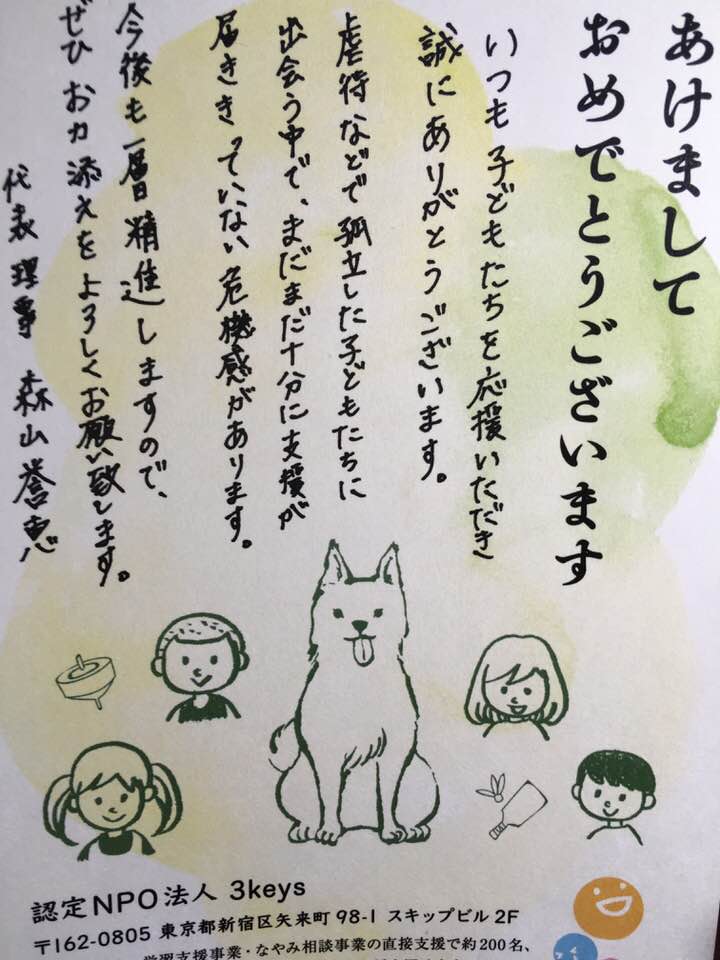 あけまして
おめでとうございます
いつも子どもたちを応援いただき
誠にありがとうございます。
虐待などで孤立した子どもたちに
出会う中で、まだまだ十分に支援が
届ききっていない危機感があります。
今後も一層精進しますので、
ぜひお力添えをよろしくお願い致します。
代表理事 森山誉恵
認定NPO法人 3keys
〒162-0805 東京都新宿区矢来町98-1 スキップビル2F
学習支援事業・なやみ相談事業の直接支援で約200名、